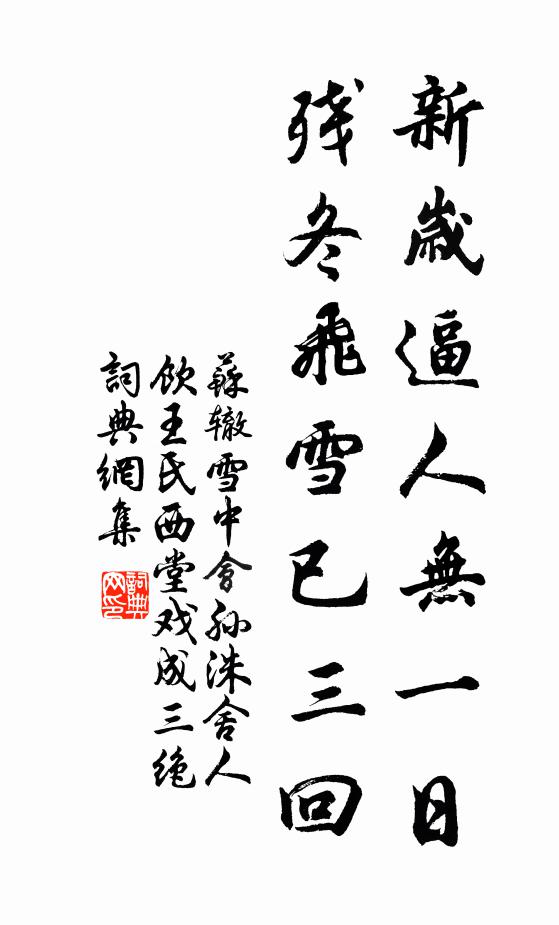 新歲逼人無一日
残冬飛雪已三回
蘇辙雪中會孫洙舍人
飲王氏西堂戏成三绝
詞典網集
詞典網印